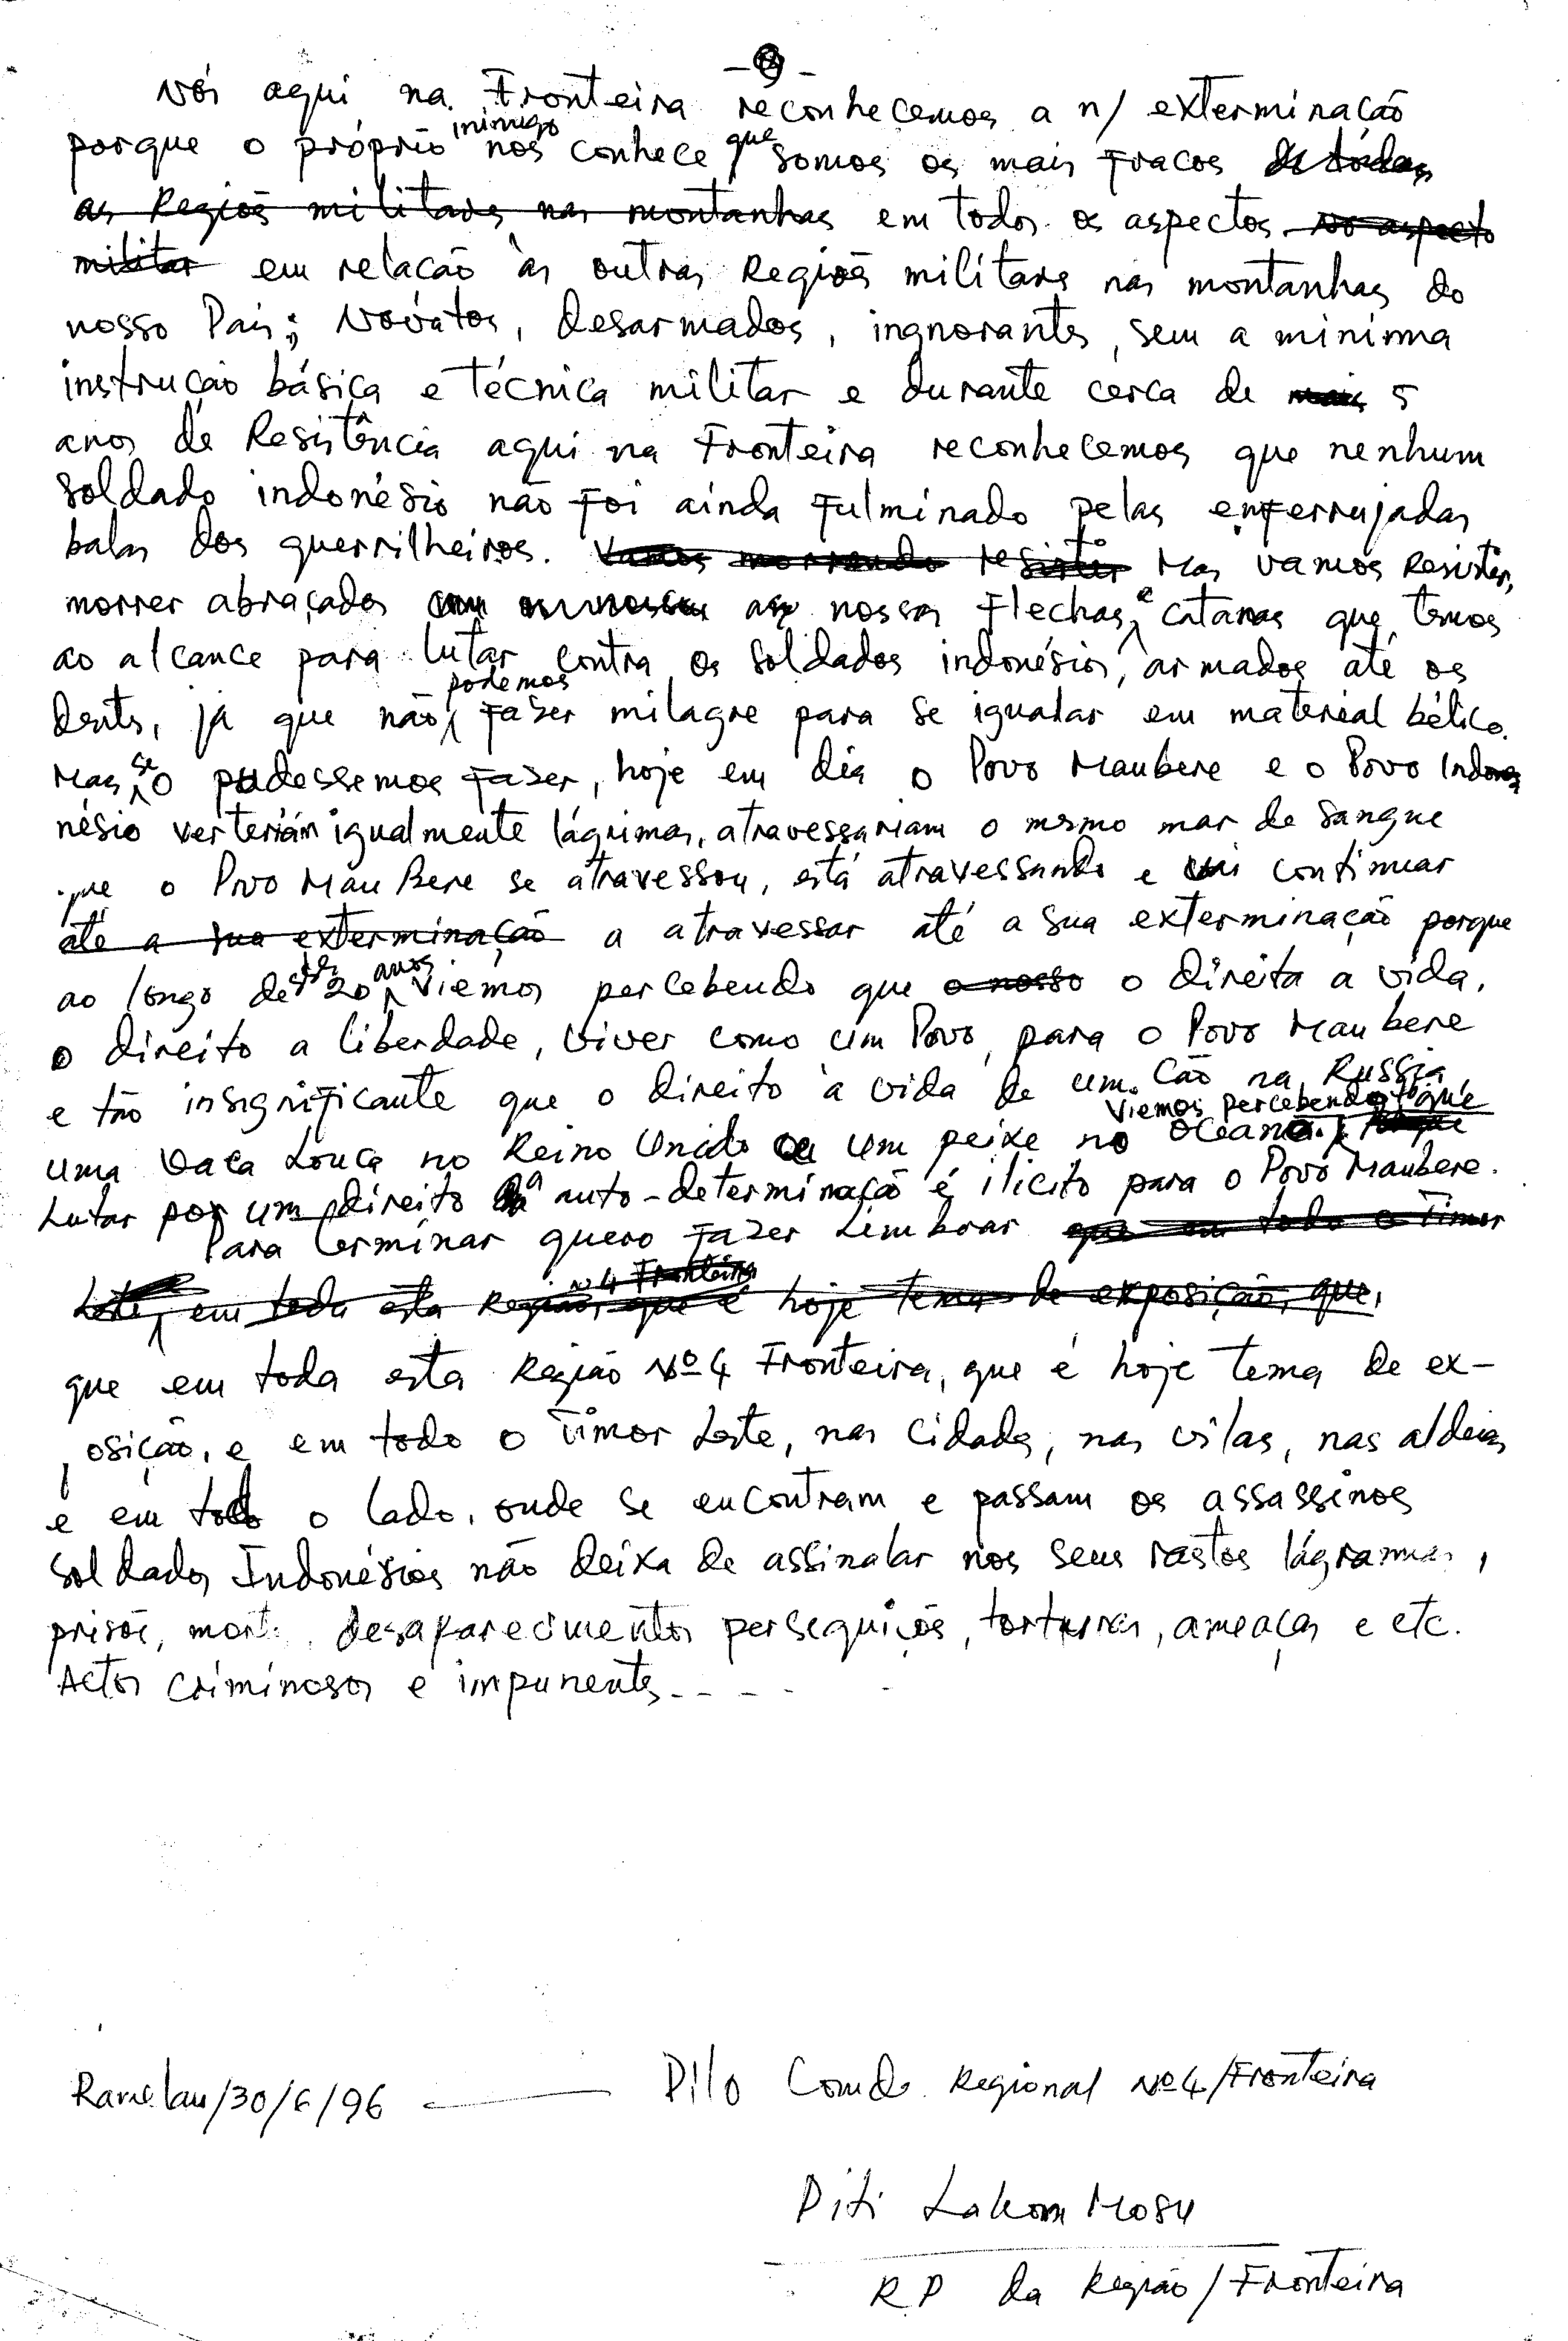 Nós aqui na Fronteira reconhecemos a n/ exterminação
porque o próprio inimigo nos conhece que somos os mais fracos de todas
as Regiõs militares nas montanhas em todos os aspectos no aspecto
militar em relação às outras Regiõs militares nas montanhas do
nosso Pais; Novátos, desarmados, ingnorantes, sem a minima
instrução básica e técnica militar e durante cerca de mais 5
anos de Resistência aqui na Fronteira reconhecemos que nenhum
soldado indonésio não foi ainda fulminado pelas enferrujadas
balas dos guerrilheiros. Vamos morrendo resistir Mas vamos Resistir,
morrer abraçados as nossas Flechas e catanas que temos
ao alcance para lutar contra os soldados indonésios, armados até os
dentes, já que não podemos fazer milagre para se igualar em material bélico.
Mas se o pudessemos fazer, hoje em dia o Povo Maubere e o Povo Indo
nésio verteriám igualmente lágrimas, atravessariam o mesmo mar de sangue
que o Povo Mau Bere se atravessou, está atravessando e vai continuar
até a sua exterminação a atravessar até a sua exterminação porque
ao longo destes 20 anos viemos percebendo que o nosso o direita a vida,
o direito a liberdade, viver como um Povo, para o Povo Maubere
e tão insignificante que o direito à vida de um Cão na Russia
uma Vaca Louca no Reino Unido ou um peixe no oceano. Viemos percebendo que porque
Lutar por um direito à auto-determinação é ilicito para o Povo Maubere.
Para terminar quero fazer Lembrar que em todo o Timor
Leste, em toda esta Região, nº 4 Fronteira que é hoje tema de exposição, que,
que em toda esta Região Nº 4 Fronteira, que é hoje tema de ex-
posição, e em todo o Timor Leste, nas cidades, nas vilas, nas aldeias
e em todo o lado, onde se encontram e passam os assassinos
soldados Indonésios não deixa de assinalar nos seus rastos lágrammas,
prisõe, mort.. desaparecimentos perseguiçõs, torturas, ameaças e etc.
Actos criminosos e impunentes - - - -
Ramelau/30/6/96 ——— Pilo Comdo. Regional Nº 4/Fronteira
Piti Lakon Mosu
RP da Região/Fronteira